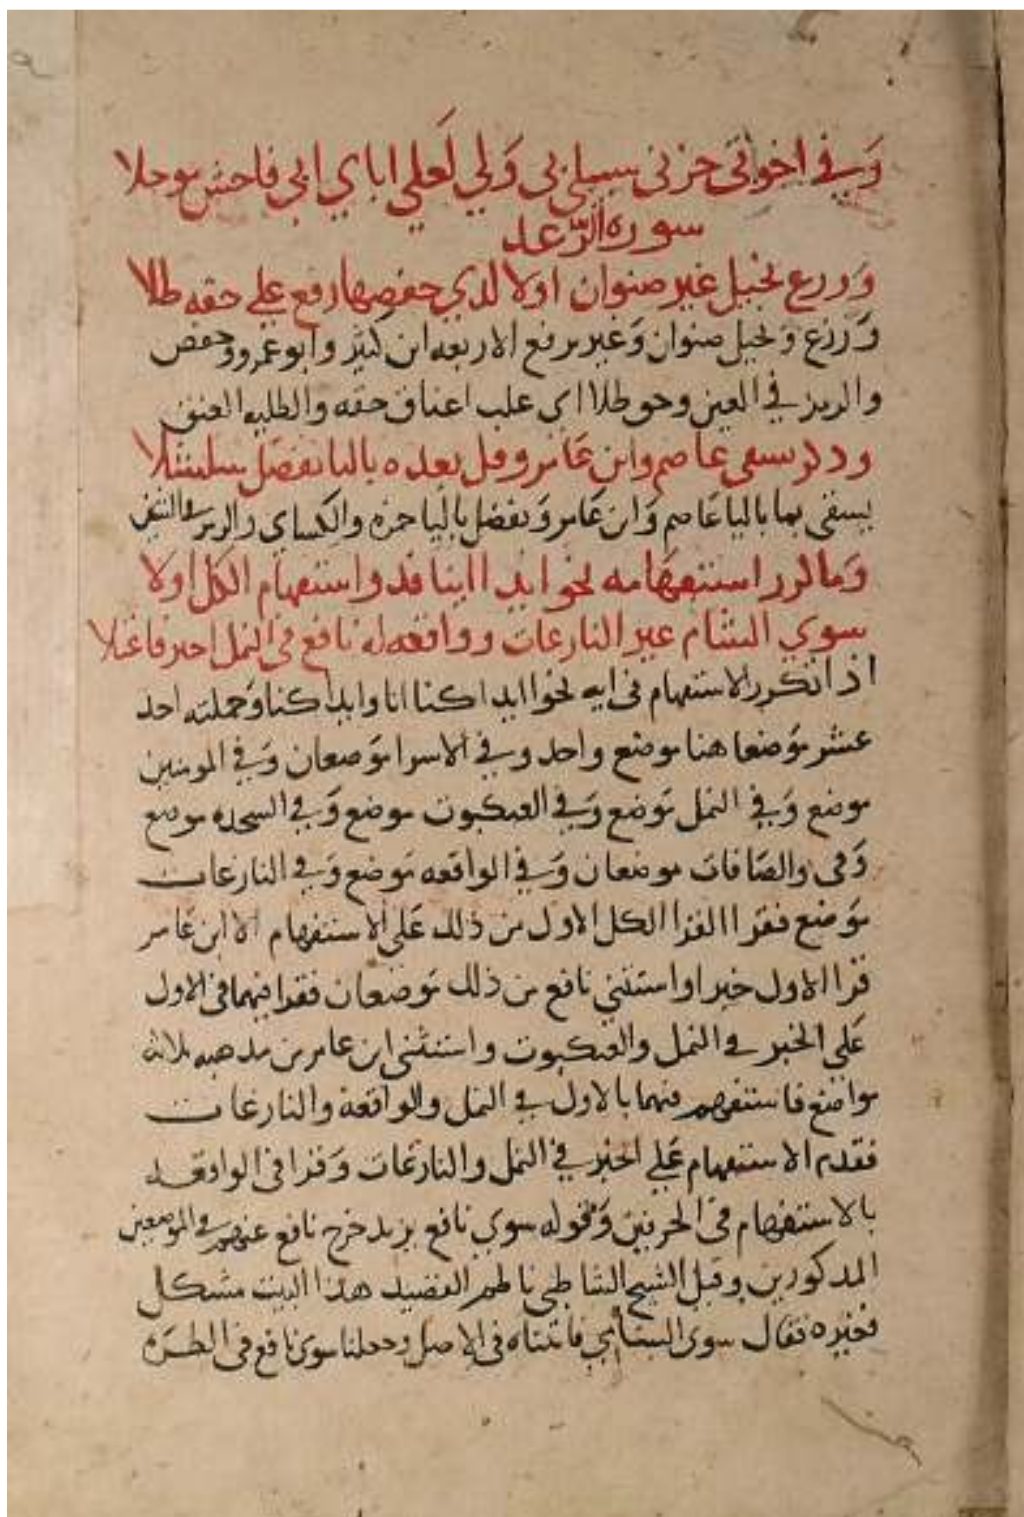 وَفي اخوتي حزني سبيلي بي وَلي لَعلي اباي ابي فاخش موحلا
سورة الرّعد
وَزرع نخيل غير صنوان اولا لدي خفضها رفع علي حقه طلا
وَزرع وَنخيل صنوان وَغير برفع الاربعه ابن كثير وابو عمرو وحفص
والرمز في العين وحق طلا اي علب اعناق حقه والطليه العنق
وذكر يسقى عاصم وابن عَامر وقل بعده باليا يفضل شلشلا
يسقى بما باليا عَاصم وَابن عَامر وَيفضل باليا حمزه والكساي والرمز في الشين
وَما كرر استفهَامه نحو ايذا اينا فذو استفهام الكل اولا
سوي الشام غير النازعات وواقعه له نافع في النمل اخبر فاعتلا
اذا تكرر الاستفهام في ايه نحو ايذا كنا انا وايذا كنا وَجملته احد
عشر مَوضعا هنا موضع واحد وفي الاسرا مَوضعان وَفي المومنين
موضع وَفي النمل مَوضع وَفي العنكبوت موضع وَفي السجده موضع
وَفي والصَافات موضعان وَفي الواقعه مَوضع وَفي النازعات
مَوضع فقرا القرا الكل الاول من ذلك عَلى الاستفهام الا ابن عَامر
قرا الاول خبرا واستثني نافع من ذلك مَوضعان فقرا فيهما في الاول
عَلى الخبر في النمل والعنكبوت واستثنى ابن عامر من مذهبه ثلاثه
مواضع فاستفهم فيهما بالاول في النمل والواقعة والنازعات
فقدم الاستفهام عَلي الخبر في النمل والنازعَات وَقرا في الواقعه
بالاستفهام في الحرفين وَقوله سوي نافع يريد خرج نافع عنهم في الموضعين
المذكورين وقيل الشيخ الشاطبي ناظم القصيد هذا البيت مشكل
فغيره فقال سوى الشامي فاثبتناه في الاصل وجعلنا سوى نافع في الطرَه